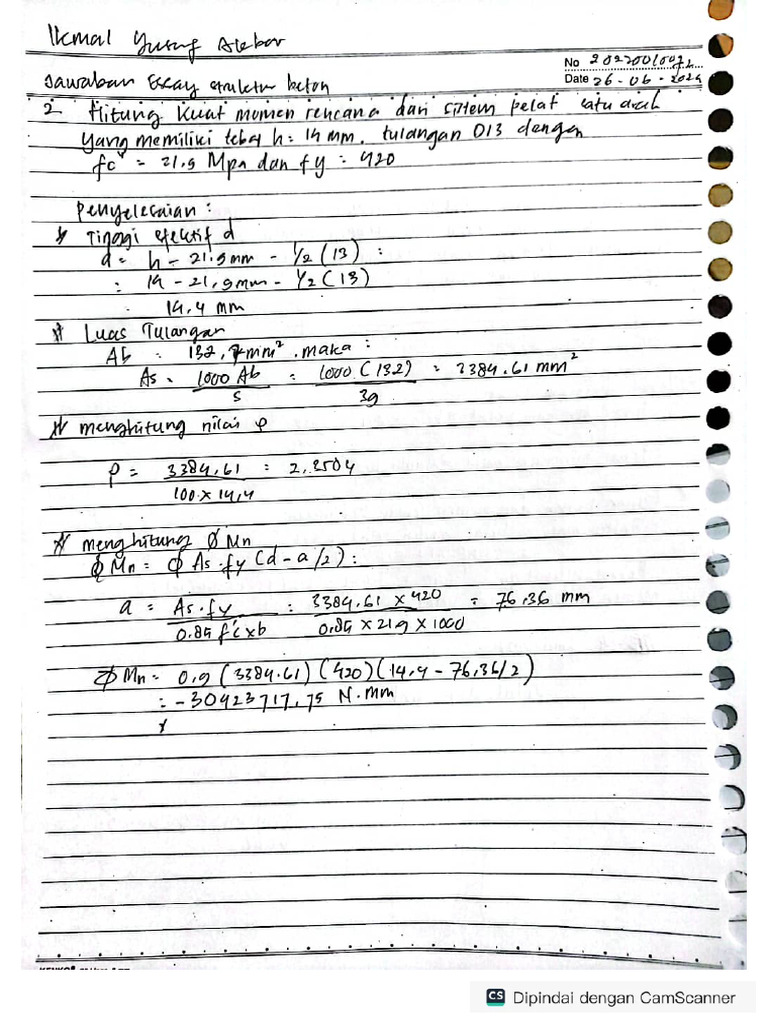 Ikmal Yusuf Akbar
No 20220010072
Date 26-06-2024
Jawaban Essay struktur beton
2 Hitung Kuat momen rencana dari sistem pelat satu arah
yang memiliki tebal h = 14 mm. tulangan D13 dengan
fc' = 21.9 Mpa dan fy = 420
Penyelesaian :
* Tinggi efektif d
d = h - 21.9 mm - 1/2 (13) :
= 14 - 21,9mm - 1/2 (13)
= 14,4 mm
* Luas Tulangan
Ab = 132,7 mm² . maka :
As = 1000 Ab / s = 1000 (132) / 39 = 3384.61 mm²
* menghitung nilai ρ
ρ = 3384,61 / 100 x 14,4 = 2,3504
* menghitung Ø Mn
Ø Mn = Ø As . fy (d - a/2) :
a = As . fy / 0.85 f'c x b = 3384.61 x 420 / 0,85 x 21 9 x 1000 = 76,36 mm
Ø Mn = 0,9 (3384.61) (420) (14,4 - 76,36/2)
= - 30423717,75 N.mm
KENKO
CS Dipindai dengan CamScanner